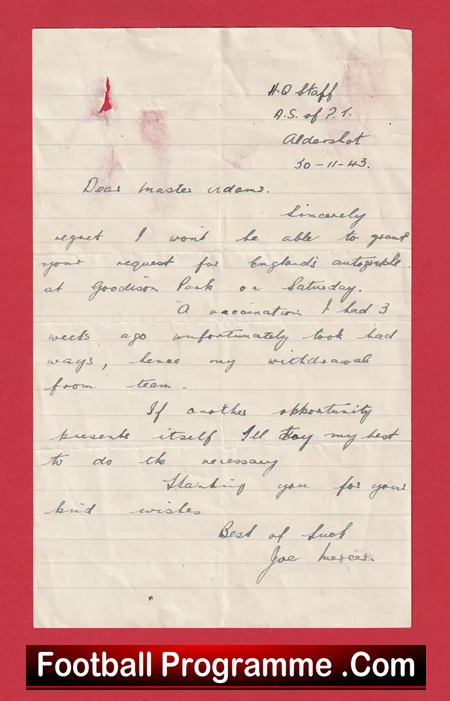 H.Q Staff
A.S. of P.T.
Aldershot
30-11-43.
Dear Master Adams.
Sincerely
regret I wont be able to grant
your request for England's autographs
at Goodison Park on Saturday.
A vaccination I had 3
weeks ago unfortunately took bad
ways, hence my withdrawal
from team.
If another opportunity
presents itself I'll try my best
to do the necessary
Thanking you for your
kind wishes
Best of luck
Joe Mercer.
Football Programme .Com